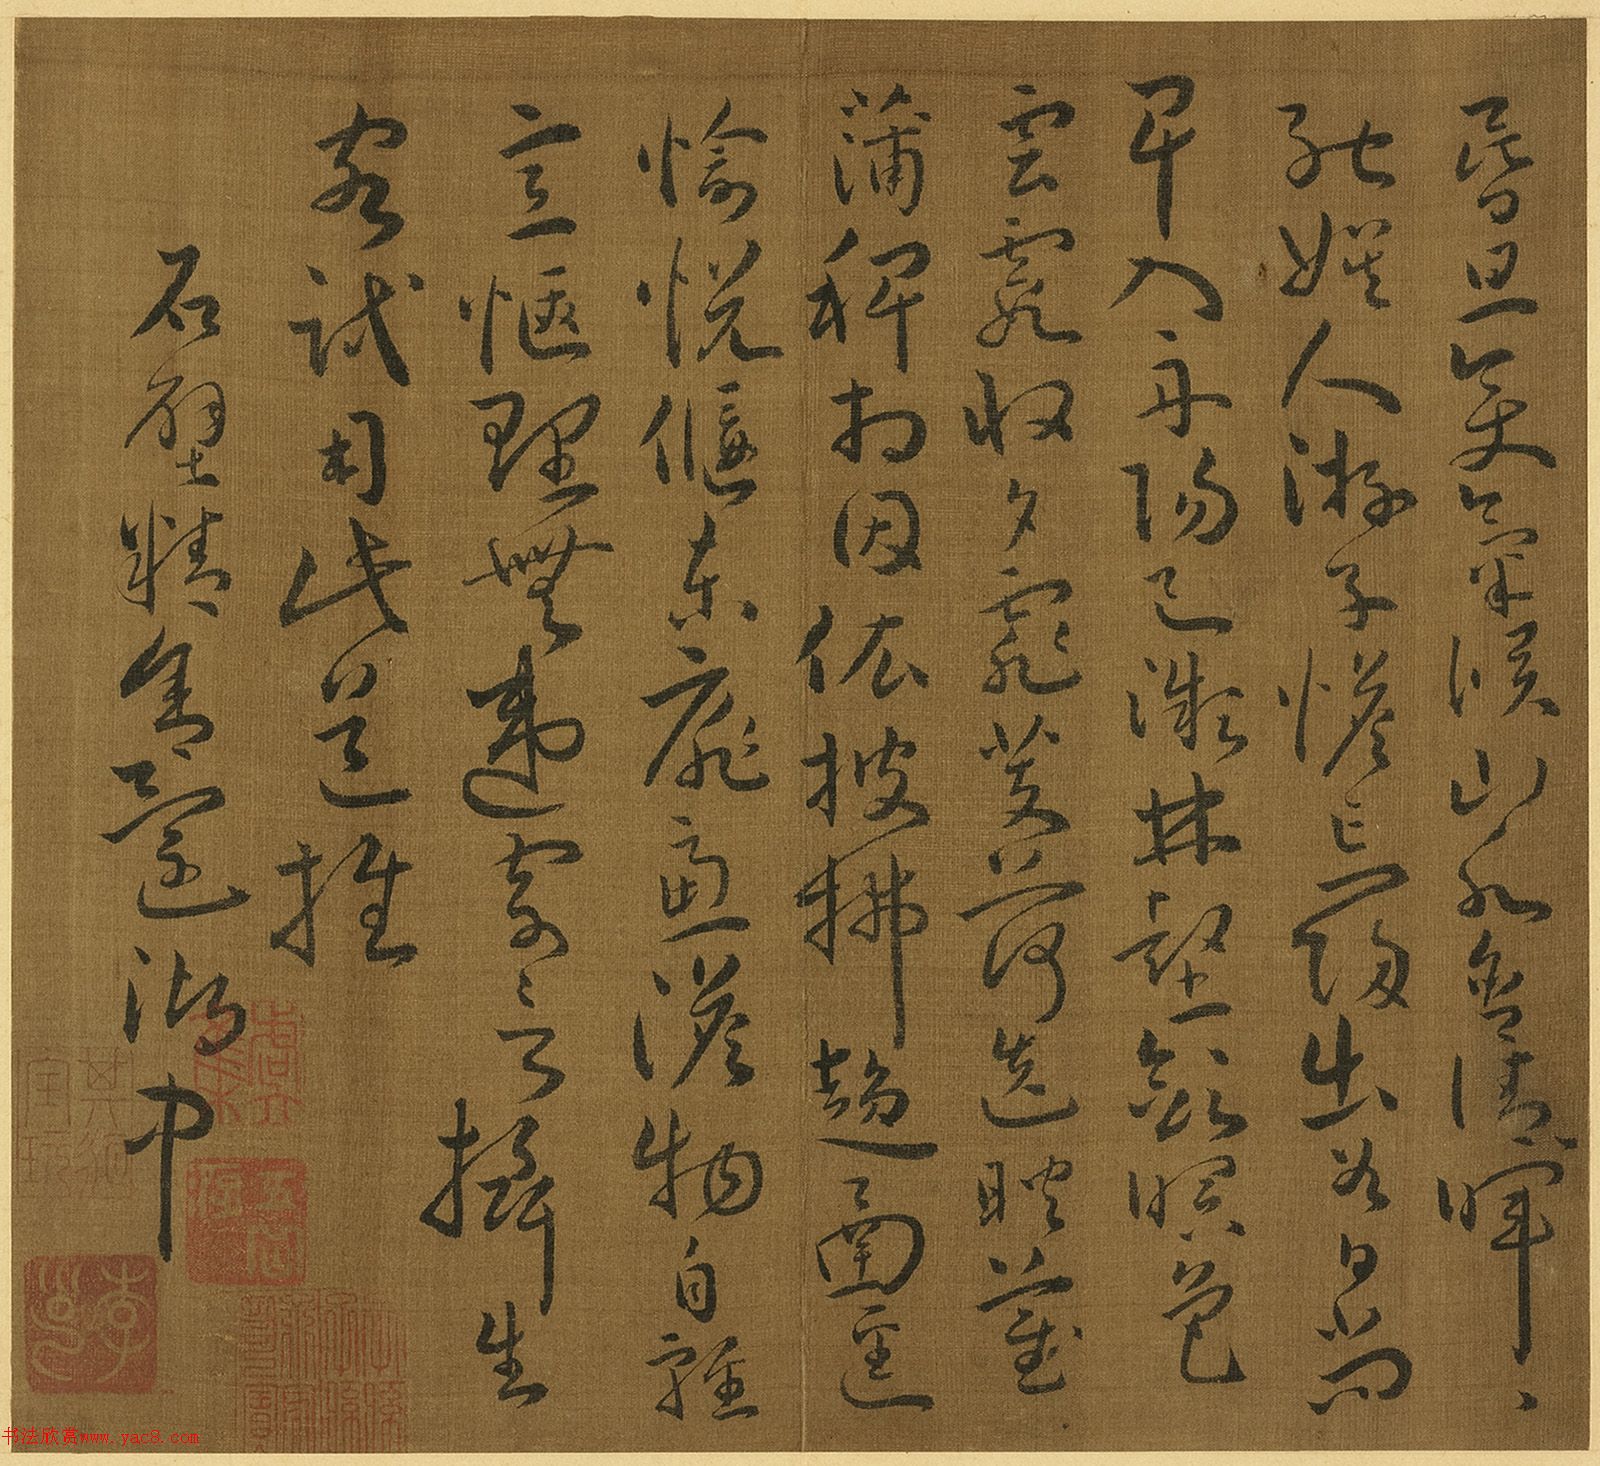 昏旦變氣候山水含清〻暉〻
能娛人游子憺忘歸出谷日尚
早入舟陽已微林壑斂暝色
雲霞收夕霏芰荷迭映蔚
蒲稗相因依披拂趨南逕
愉悅偃東扉慮澹物自輕
意愜理無違寄言攝生
客試用此道推
石壁精舍還湖中
书法欣赏www.yac8.com